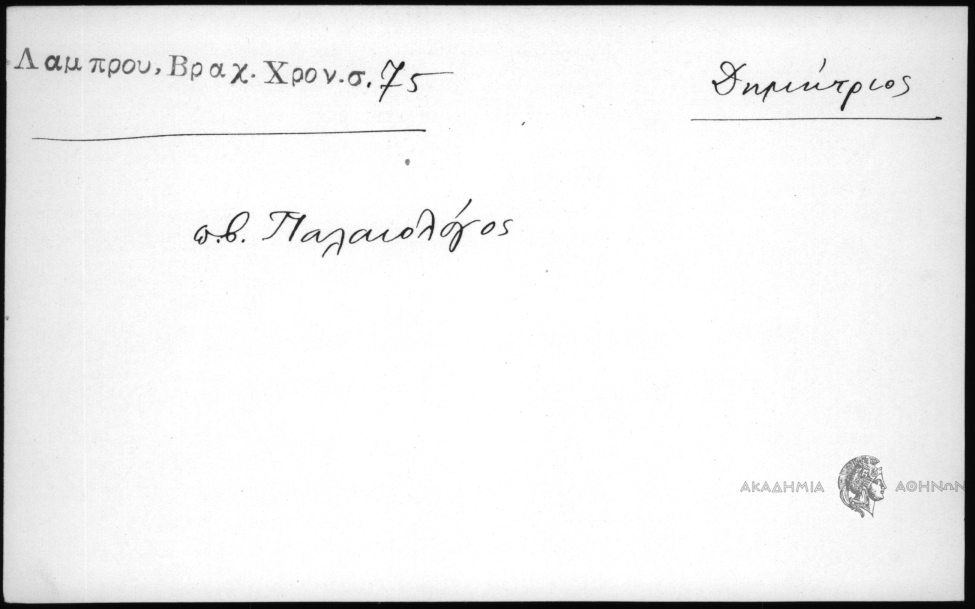 Λαμπρου, Βραχ. Χρον. σ. 75
Δημήτριος
π.β. Παλαιολόγος
ΑΚΑΔΗΜΙΑ ΑΘΗΝΩΝ